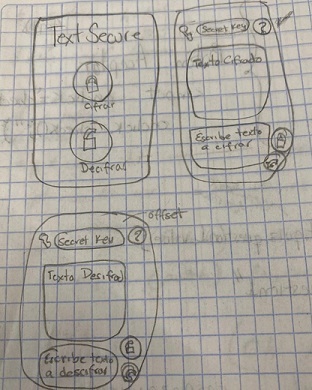 Text Secure
Cifrar
Decifrar
Secret Key ?
Texto Cifrado
Escribe texto
a cifrar
offset
Secret Key ?
Texto Descifrad
Escribe texto
a descifrar